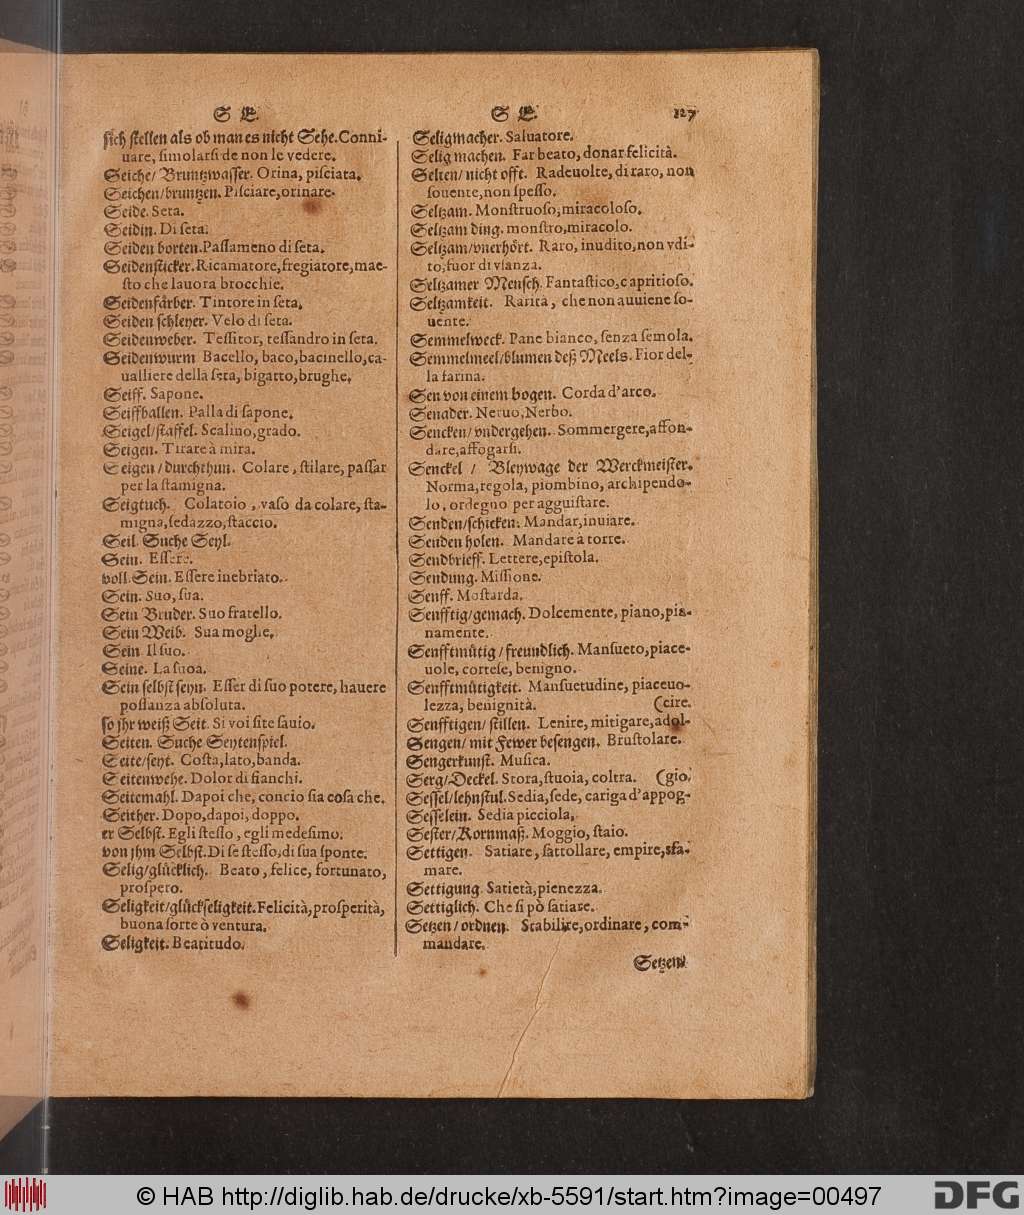 S E.
sich stellen als ob man es nicht Sehe. Conni-
uare, simolarsi de non le vedere.
Seiche/ Bruntzwasser. Orina, pisciata.
Seichen/bruntzen. Pisciare, orinare.
Seide. Seta.
Seidin. Di seta.
Seiden borten. Passameno di seta.
Seidensticker. Ricamatore, fregiatore, mae-
sto che lauora brocchie.
Seidenfårber. Tintore in seta.
Seiden schleyer. Velo di seta.
Seidenweber. Tessitor, tessandro in seta.
Seidenwurm Bacello, baco, bacinello, ca-
ualliere della seta, bigatto, brughe.
Seiff. Sapone.
Seiffballen. Palla di sapone.
Seigel/staffel. Scalino, grado.
Seigen. Tirare à mira.
Seigen/durchthun. Colare, stilare, passar
per la stamigna.
Seigtuch. Colatoio, vaso da colare, sta-
migna, sedazzo, staccio.
Seil. Suche Seyl.
Sein. Essere.
voll Sein. Essere inebriato.
Sein. Suo, sua.
Sein Bruder. Suo fratello.
Sein Weib. Sua moghe.
Sein. Il suo.
Seine. La suoa.
Sein selbst seyn. Esser di suo potere, hauere
possanza absoluta.
so jhr weiß Seit. Si voi site sauio.
Seiten. Suche Seytenspiel.
Seite/seyt. Costa, lato, banda.
Seitenwehe. Dolor di fianchi.
Seitemahl. Dapoi che, concio sia cosa che.
Seither. Dopo, dapoi, doppo.
er Selbst. Egli stesso, egli medesimo.
von jhm Selbst. Di se stesso, di sua sponte.
Selig/glůcklich. Beato, felice, fortunato,
prospero.
Seligkeit/glůckseligkeit. Felicità, prosperità,
buona sorte ò ventura.
Seligkeit. Beatitudo.
S E. 127
Seligmacher. Saluatore.
Selig machen. Far beato, donar felicità.
Selten/ nicht offt. Radeuolte, di raro, non
souente, non spesso.
Seltzam. Monstruoso, miracoloso.
Seltzam ding. monstro, miracolo.
Seltzam/vnerhôrt. Raro, inudito, non vdi-
to, fuor di vsanza.
Seltzamer Mensch. Fantastico, capritioso.
Seltzamkeit. Rarità, che non auuiene so-
uente.
Semmelweck. Pane bianco, senza semola.
Semmelmeel/blumen deß Meels. Fior del-
la farina.
Sen von einem bogen. Corda d'arco.
Senader. Neruo, Nerbo.
Sencken/ vndergehen. Sommergere, affon-
dare, affogarsi.
Senckel / Bleywage der Werckmeister.
Norma, regola, piombino, archipendo-
lo, ordegno per agguistare.
Senden/schicken. Mandar, inuiare.
Senden holen. Mandare à torre.
Sendbrieff. Lettere, epistola.
Sendung. Missione.
Senff. Mostarda.
Senfftig/gemach. Dolcemente, piano, pia-
namente.
Senfftmůtig / freundlich. Mansueto, piace-
uole, cortese, benigno.
Senfftmůtigkeit. Mansuetudine, piaceuo-
lezza, benignità. (cire.
Senfftigen/ stillen. Lenire, mitigare, adol-
Sengen/ mit Fewer besengen. Brustolare.
Sengerkunst. Musica.
Serg/Deckel. Stora, stuoia, coltra. (gio.
Sessel/lehnstul. Sedia, sede, cariga d'appog-
Sesselein. Sedia picciola.
Sester/Kornmaß. Moggio, staio.
Settigen. Satiare, sattollare, empire, sfa-
mare.
Settigung. Satietà, pienezza.
Settiglich. Che si pò satiare.
Setzen/ ordnen. Stabilire, ordinare, com-
mandare.
Setzen
© HAB http://diglib.hab.de/drucke/xb-5591/start.htm?image=00497
DFG